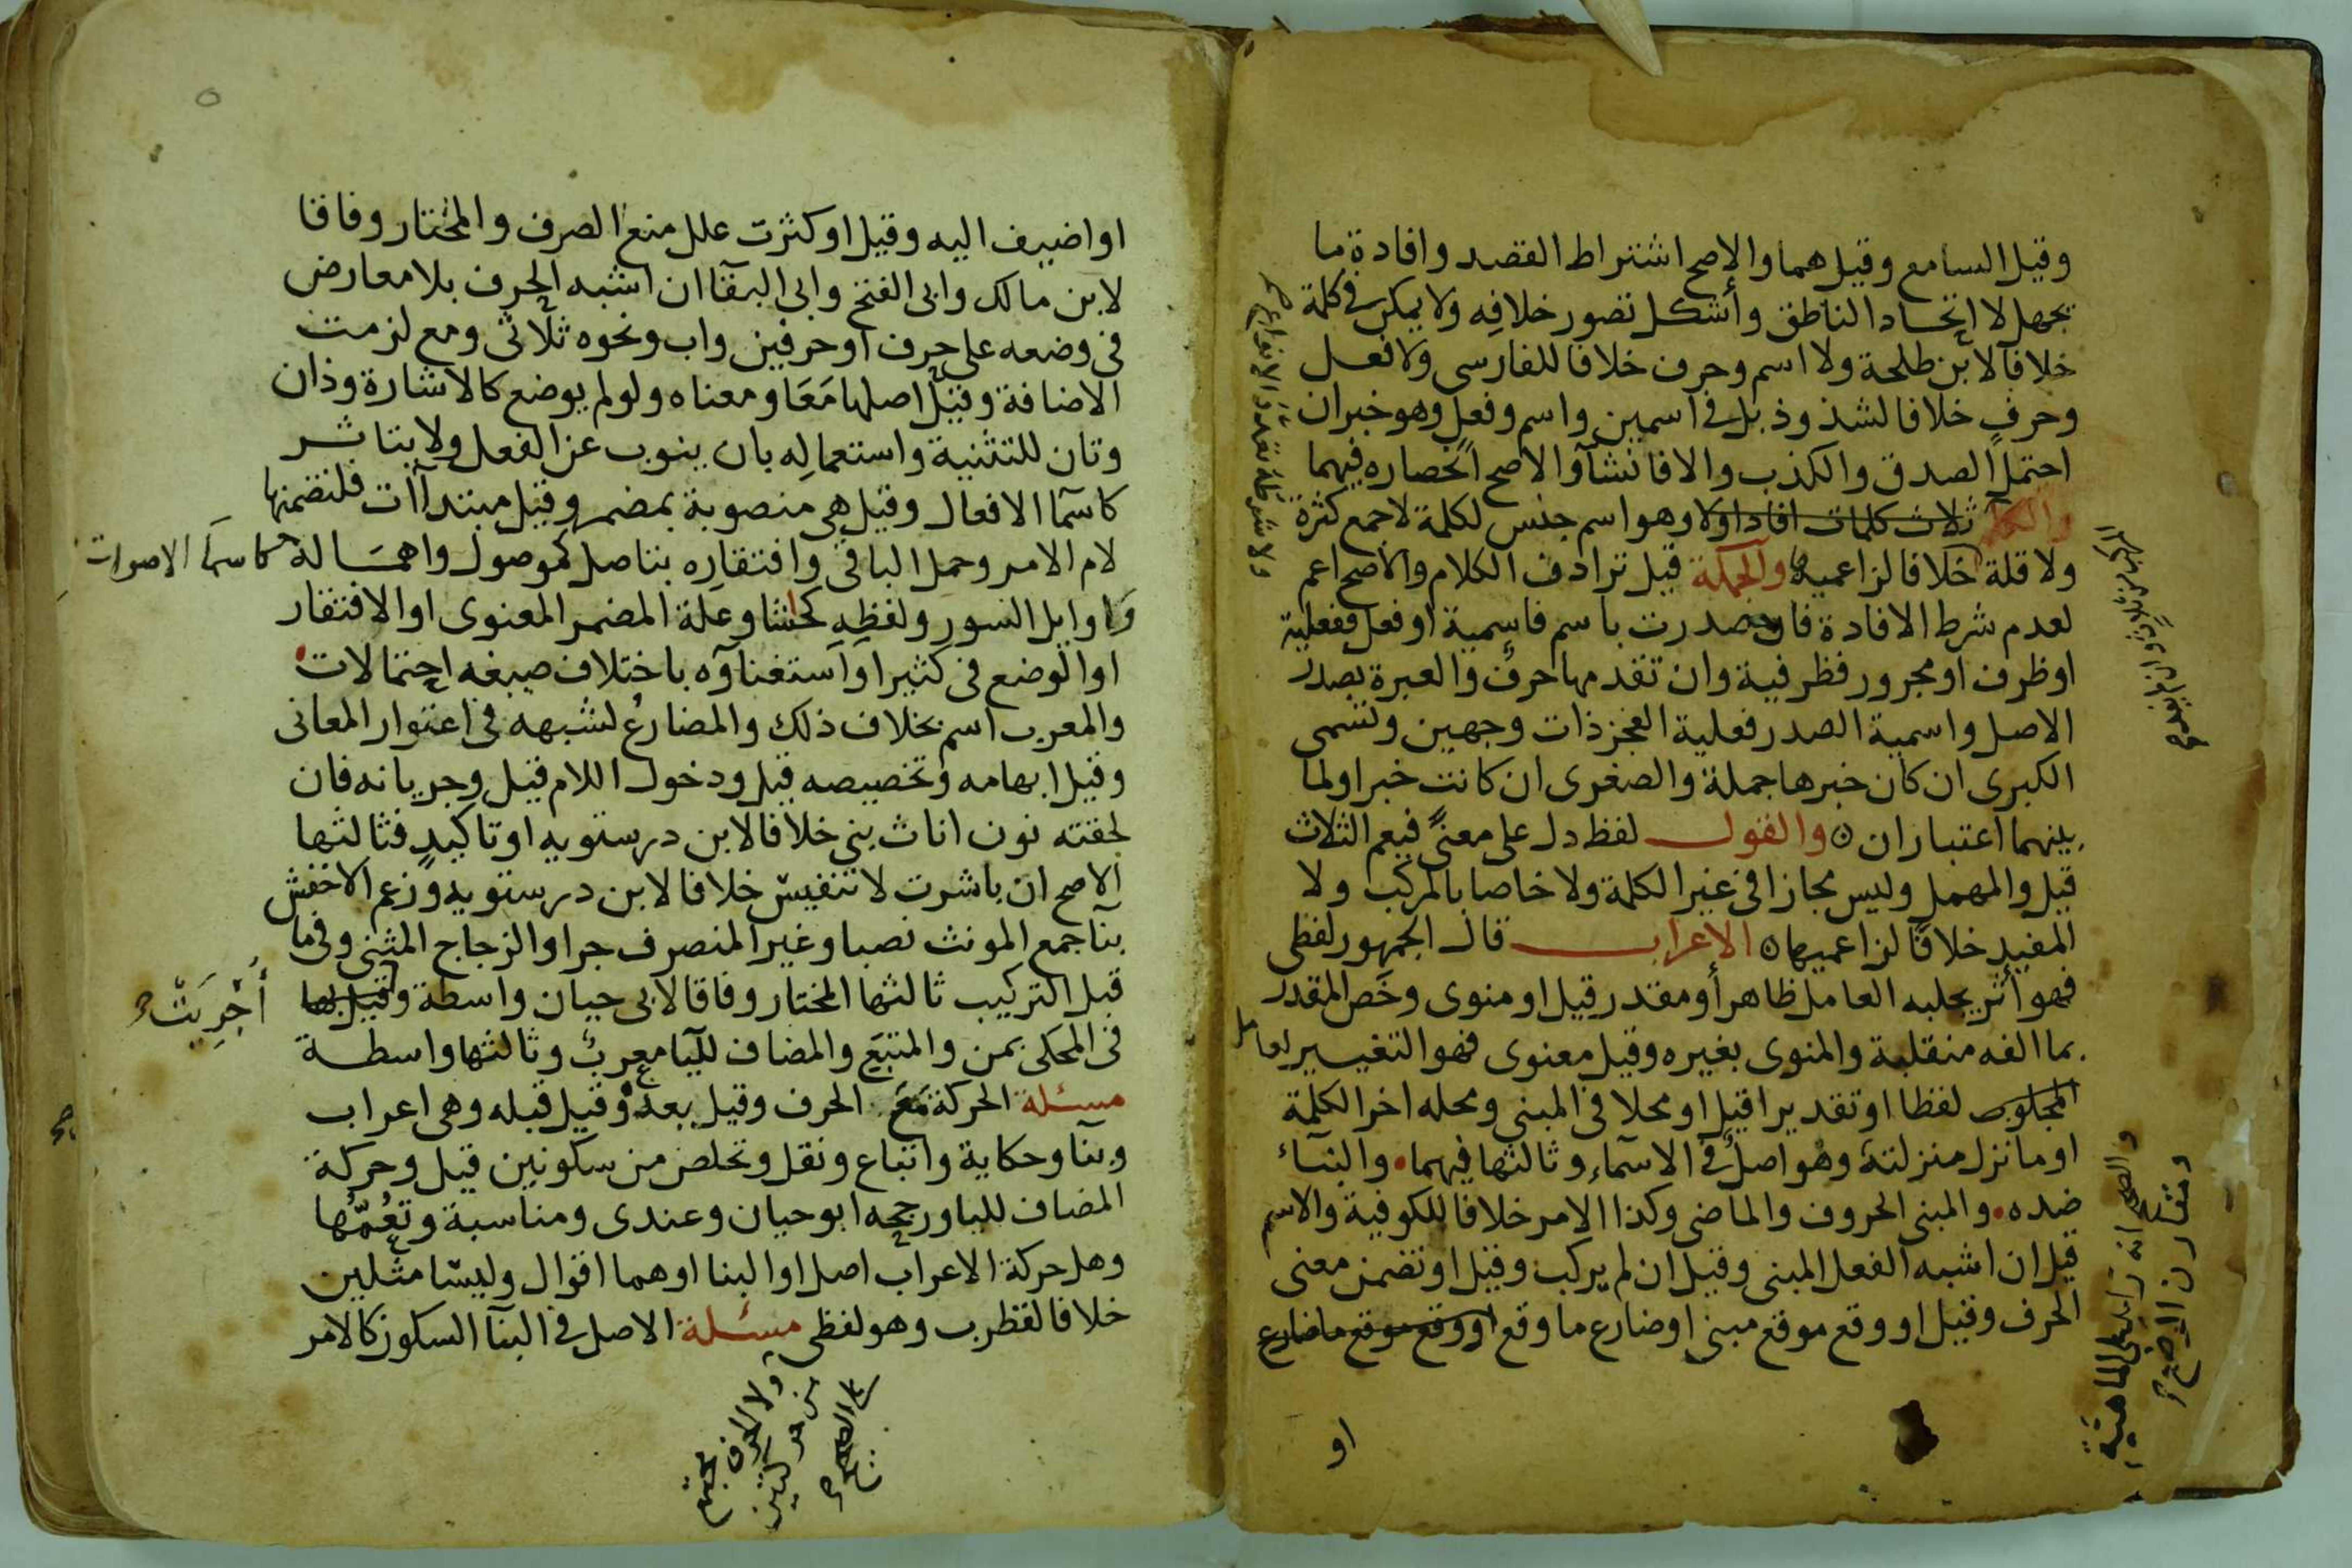 وقيل السامع وقيل هما والاصح اشتراط القصد وافادة ما
يجهل لا اتحاد الناطق وأشكل تصور خلافه ولا يمكن في كلمة
خلافا لابن طلحة ولا اسم وحرف خلافا للفارسي ولا فعل
وحرف خلافا لشذوذ بل في اسمين واسم وفعل وهو خبر ان
احتمل الصدق والكذب والا فانشآ والاصح انحصاره فيهما
والكلم ثلاث كلمات افاد اولا وهو اسم جنس لكلمة لا جمع كثرة
ولا قلة خلافا لزاعميها والجملة قيل ترادف الكلام والاصح اعم
لعدم شرط الافادة فان صدرت باسم فاسمية او فعل ففعلية
او ظرف او مجرور فظرفية وان تقدمها حرف والعبرة بصدر
الاصل واسمية الصدر فعلية العجز ذات وجهين وتسمى
الكبرى ان كان خبرها جملة والصغرى ان كانت خبرا ولما
بينهما اعتباران ٥ والقول لفظ دل على معنًى فيعم الثلاث
قيل والمهمل وليس مجازا في غير الكلمة ولا خاصا بالمركب ولا
المفيد خلافا لزاعميها ٥ الاعراب قال الجمهور لفظي
فهو أثر يجلبه العامل ظاهر أو مقدر قيل او منوى وخص المقدر
بما الفه منقلبة والمنوى بغيره وقيل معنوى فهو التغيير لعامل
لفظا او تقديرا قيل او محلا في المبنى ومحله اخر الكلمة
او ما نزل منزلته وهو اصل في الاسماء وثالثها فيهما . والبنآء
ضده . والمبنى الحروف والماضى وكذا الامر خلافا للكوفية والاسم
قيل ان اشبه الفعل المبنى وقيل ان لم يركب وقيل او تضمن معنى
الحرف وقيل او وقع موقع مبنى او ضارع ما وقع او وقع موقع ما ضارع
او
ولا شرطه تعدد الانواع صح
والصح انه زايد على الماهية
ومقارن الوضع صح
او اضيف اليه وقيل او كثرت علل منع الصرف والمختار وفاقا
لابن مالك وابى الفتح وابى البقآ ان اشبه الحرف بلا معارض
فى وضعه على حرف او حرفين واب ونحوه ثلاثى ومع لزمت
الاضافة وقيل اصلها مَعَا ومعناه ولو لم يوضع كالاشارة وذان
وتان للتثنية واستعماله بان ينوب عن الفعل ولا يتاثر
كاسمآ الافعال وقيل هى منصوبة بمضمر وقيل مبتدآت فلتضمنها
لام الامر وحمل الباقى وافتقاره بتاصل كموصول واهماله كاسمآ الاصوات
واوايل السور ولفظه كحاشا وعلة المضمر المعنوى او الافتقار
او الوضع فى كثير او استغناؤه باختلاف صيغه احتمالات
والمعرب اسم بخلاف ذلك والمضارع لشبهه فى اعتوار المعانى
وقيل ابهامه وتخصيصه قيل ودخول اللام قيل وجريانه فان
لحقته نون اناث بنى خلافا لابن درستويه او تاكيد فثالثها
الاصح ان باشرت لا تنفيس خلافا لابن درستويه وزعم الاخفش
بنآ جمع المونث نصبا وغير المنصرف جرا والزجاج المثنى وفى ما
قبل التركيب ثالثها المختار وفاقا لابى حيان واسطة وقيل بها أُجْرِيَتْ صح
فى المحكى بمن والمتبع والمضاف لليا معرب وثالثها واسطة
مسئلة الحركة مع الحرف وقيل بعده وقيل قبله وهى اعراب
وبنآ وحكاية واتباع ونقل وتخلص من سكونين قيل وحركة
المضاف لليا ورجحه ابو حيان وعندى ومناسبة وتعُمّها
وهل حركة الاعراب اصل او البنا او هما اقوال وليسا مثلين
خلافا لقطرب وهو لفظى مسئلة الاصل فى البنآ السكون كالامر
ولا الحرف مجتمع
من حركتين
على الصحيح صح